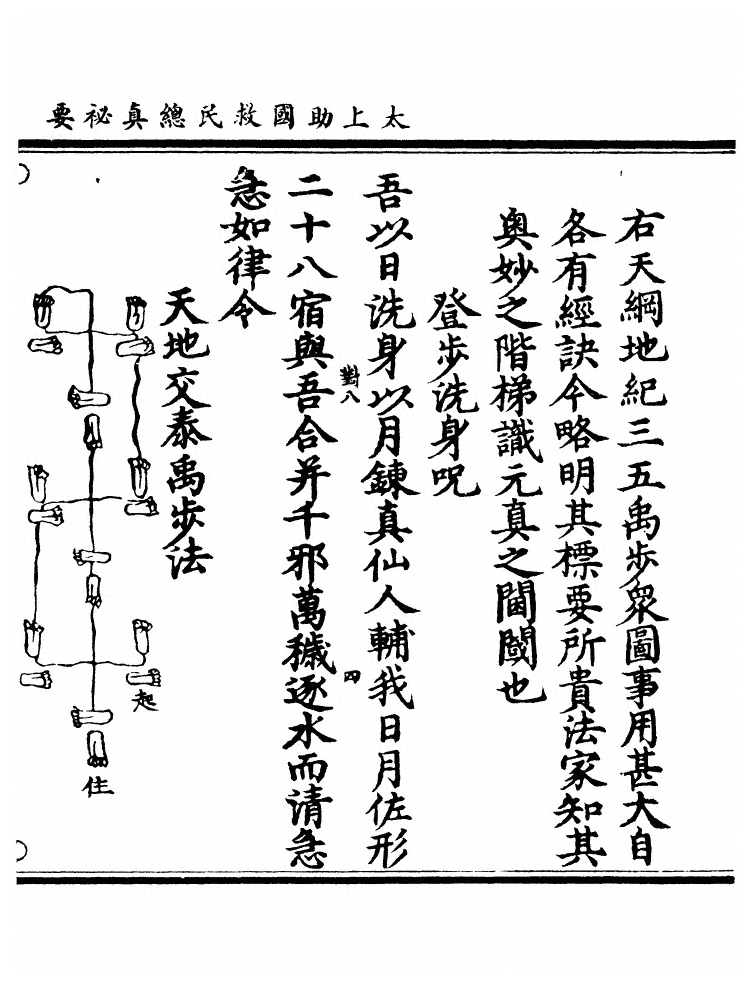 太上助國救民總真祕要
右天綱地紀三五禹步眾圖事用甚大自
各有經訣今略明其標要所貴法家知其
奧妙之階梯識元真之閫閾也
登步洗身呪
吾以日洗身以月鍊真仙人輔我日月佐形
二十八宿與吾合并千邪萬穢逐水而清急
急如律令
對八
四
天地交泰禹步法
起
住